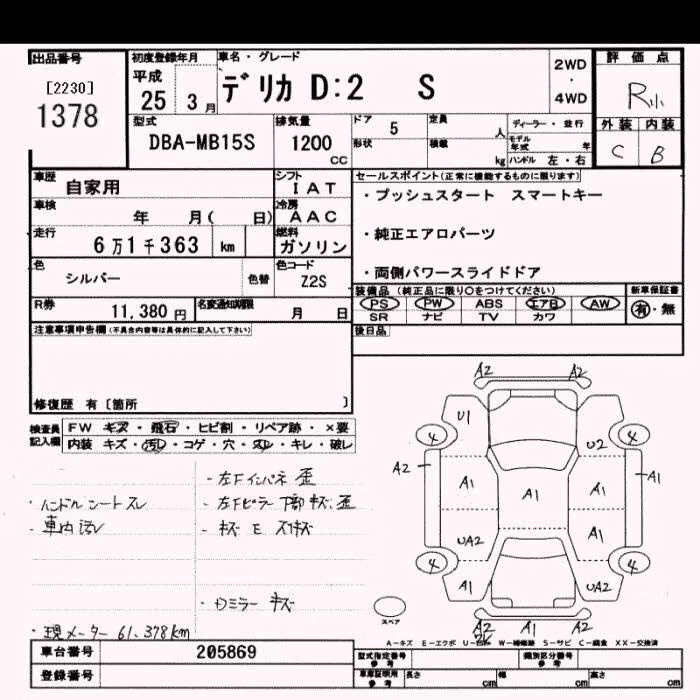 出品番号 初度登録年月 車名・グレード 2WD・4WD 評価点
[2230] 1378
平成 25 3月 デリカ D:2 S R小
型式 DBA-MB15S 排気量 1200 CC ドア 5 定員 人 ディーラー・並行 外装 内装
形状 積載 kg モデル年式 年 ハンドル 左・右 C B
車歴 自家用 シフト IAT セールスポイント(正常に機能するものに限ります)
車検 年 月( 日) 冷房 AAC ・プッシュスタート スマートキー
走行 6万1千363 km 燃料 ガソリン ・純正エアロパーツ
色 シルバー 色替 色コード Z2S ・両側パワースライドドア
R券 11,380円 名変通知期限 月 日 装備品(純正品に限り○をつけてください) 新車保証書
PS PW ABS エアB AW 有・無
SR ナビ TV カワ
注意事項申告欄(不具合内容等は具体的に記入して下さい) 後日品
修復歴 有[箇所 ]
検査員記入欄 FW キズ・飛石・ヒビ割・リペア跡・×要
内装 キズ・汚れ・コゲ・穴・スレ・キレ・破レ
・左Fインパネ 歪
・ハンドル シート スレ ・左Fピラー 下部 キズ、歪
・車内 汚レ ・キズ E スリキズ
・Dミラー キズ
・現メーター 61,378km
A2 A2
U1
4 4
U2
A2 A1 A1 A1 A1
UA2 A1
4 4
A1 UA2
スペア
A2 A1 A2
A-キズ E-エクボ U-凹み W-補修跡 S-サビ C-腐食 XX-交換済
車台番号 205869 型式指定番号 参考 類別区分番号 参考
登録番号 車庫証明用 参考 長さ cm 幅 cm 高さ cm